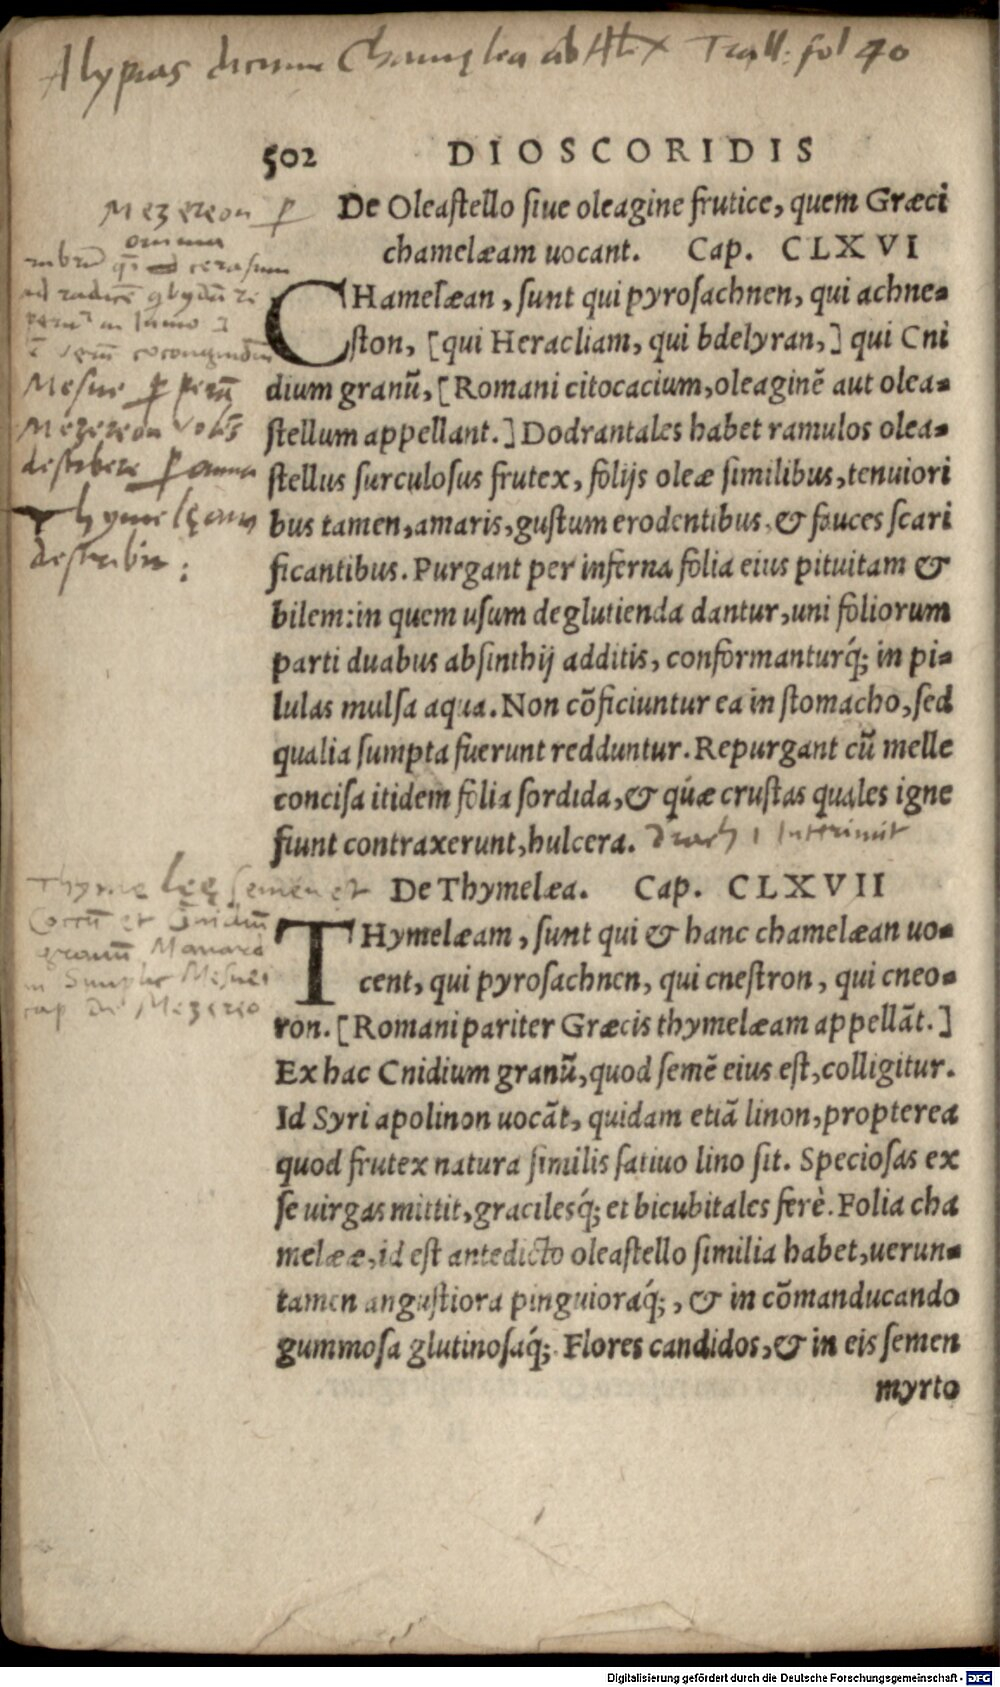 Chamelea ab Alex Trall: fol 40
502 DIOSCORIDIS
Mezereon
De Oleaſtello ſiue oleagine frutice, quem Græci
omnia
chamelæam uocant. Cap. CLXVI
CHamelæan, ſunt qui pyroſachnen, qui achne-
ſton, [qui Heracliam, qui bdelyran,] qui Cni
dium granū, [Romani citocacium, oleaginē aut olea-
ſtellum appellant.] Dodrantales habet ramulos olea-
ſtellus ſurculoſus frutex, folijs oleæ ſimilibus, tenuiori
bus tamen, amaris, guſtum erodentibus, & fauces ſcari
ficantibus. Purgant per inferna folia eius pituitam &
bilem: in quem uſum deglutienda dantur, uni foliorum
parti duabus abſinthij additis, conformanturq́; in pi-
lulas mulſa aqua. Non cōficiuntur ea in ſtomacho, ſed
qualia ſumpta fuerunt redduntur. Repurgant cū melle
conciſa itidem folia ſordida, & quæ cruſtas quales igne
fiunt contraxerunt, hulcera.
Meſue
Mezereon
deſcribere
Thymelęam
deſcribit:
De Thymelæa. Cap. CLXVII
THymelæam, ſunt qui & hanc chamelæan uo-
cent, qui pyroſachnen, qui cneſtron, qui cneo-
ron. [Romani pariter Græcis thymelæam appellāt.]
Ex hac Cnidium granū, quod ſemē eius eſt, colligitur.
Id Syri apolinon uocāt, quidam etiā linon, propterea
quod frutex natura ſimilis ſatiuo lino ſit. Specioſas ex
ſe uirgas mittit, gracileſq́; et bicubitales ferè. Folia cha
melææ, id eſt antedicto oleaſtello ſimilia habet, uerun-
tamen anguſtiora pinguioraq́;, & in cōmanducando
gummoſa glutinoſaq́;. Flores candidos, & in eis ſemen
myrto
Thymelęę ſemen et
Coccū et Gnidiū
granū Manard
in Simplic Meſuei
cap De Mezereo
Digitalisierung gefördert durch die Deutsche Forschungsgemeinschaft - DFG